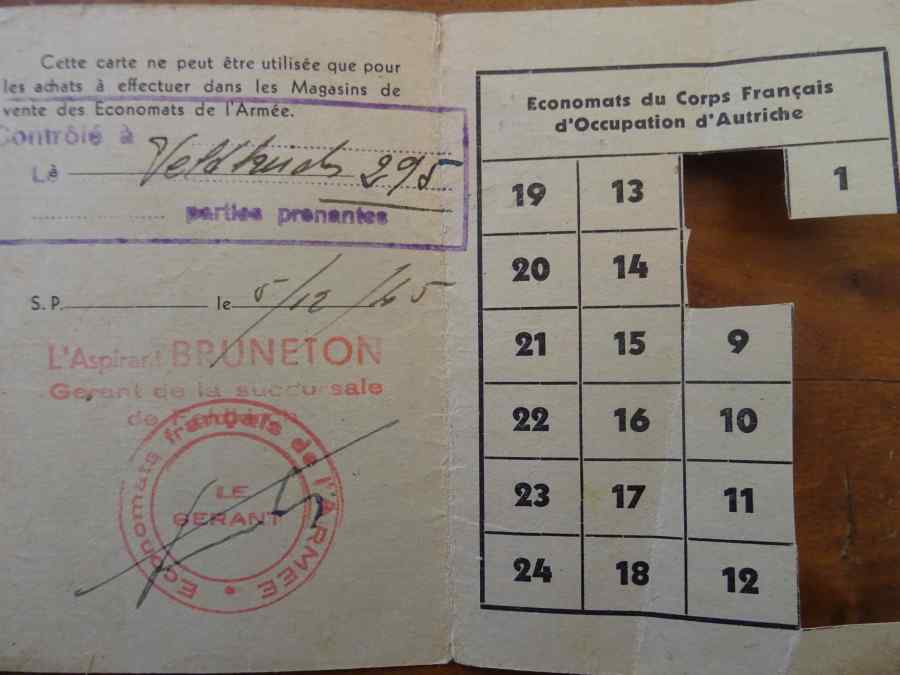 Cette carte ne peut être utilisée que pour
les achats à effectuer dans les Magasins de
vente des Economats de l'Armée.
Contrôlé à
Le 295
parties prenantes
S. P. le 5/12/45
L'Aspirant BRUNETON
Gerant de la succursale
de
Economats français de l'ARMEE
LE
GERANT
Economats du Corps Français
d'Occupation d'Autriche
19 13 1
20 14
21 15 9
22 16 10
23 17 11
24 18 12